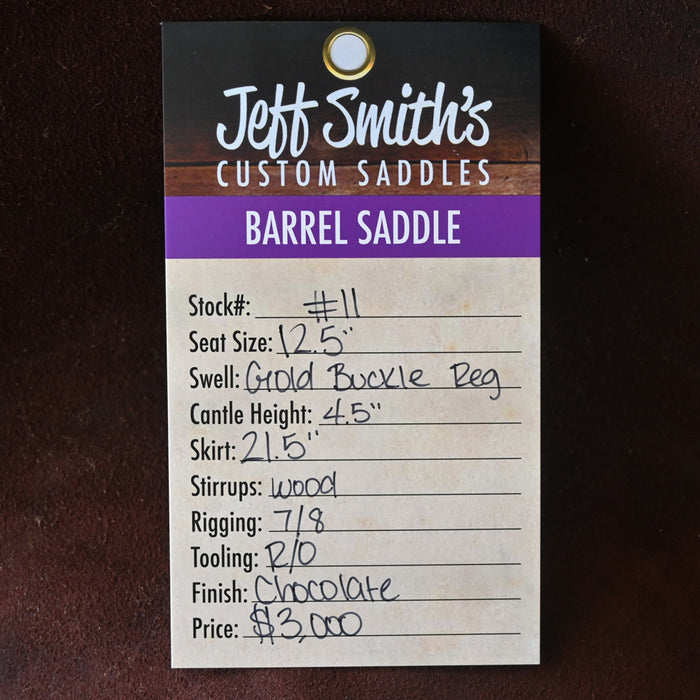 Jeff Smith's
CUSTOM SADDLES
BARREL SADDLE
Stock#: #11
Seat Size: 12.5"
Swell: Gold Buckle Reg
Cantle Height: 4.5"
Skirt: 21.5"
Stirrups: wood
Rigging: 7/8
Tooling: R/O
Finish: Chocolate
Price: $3,000